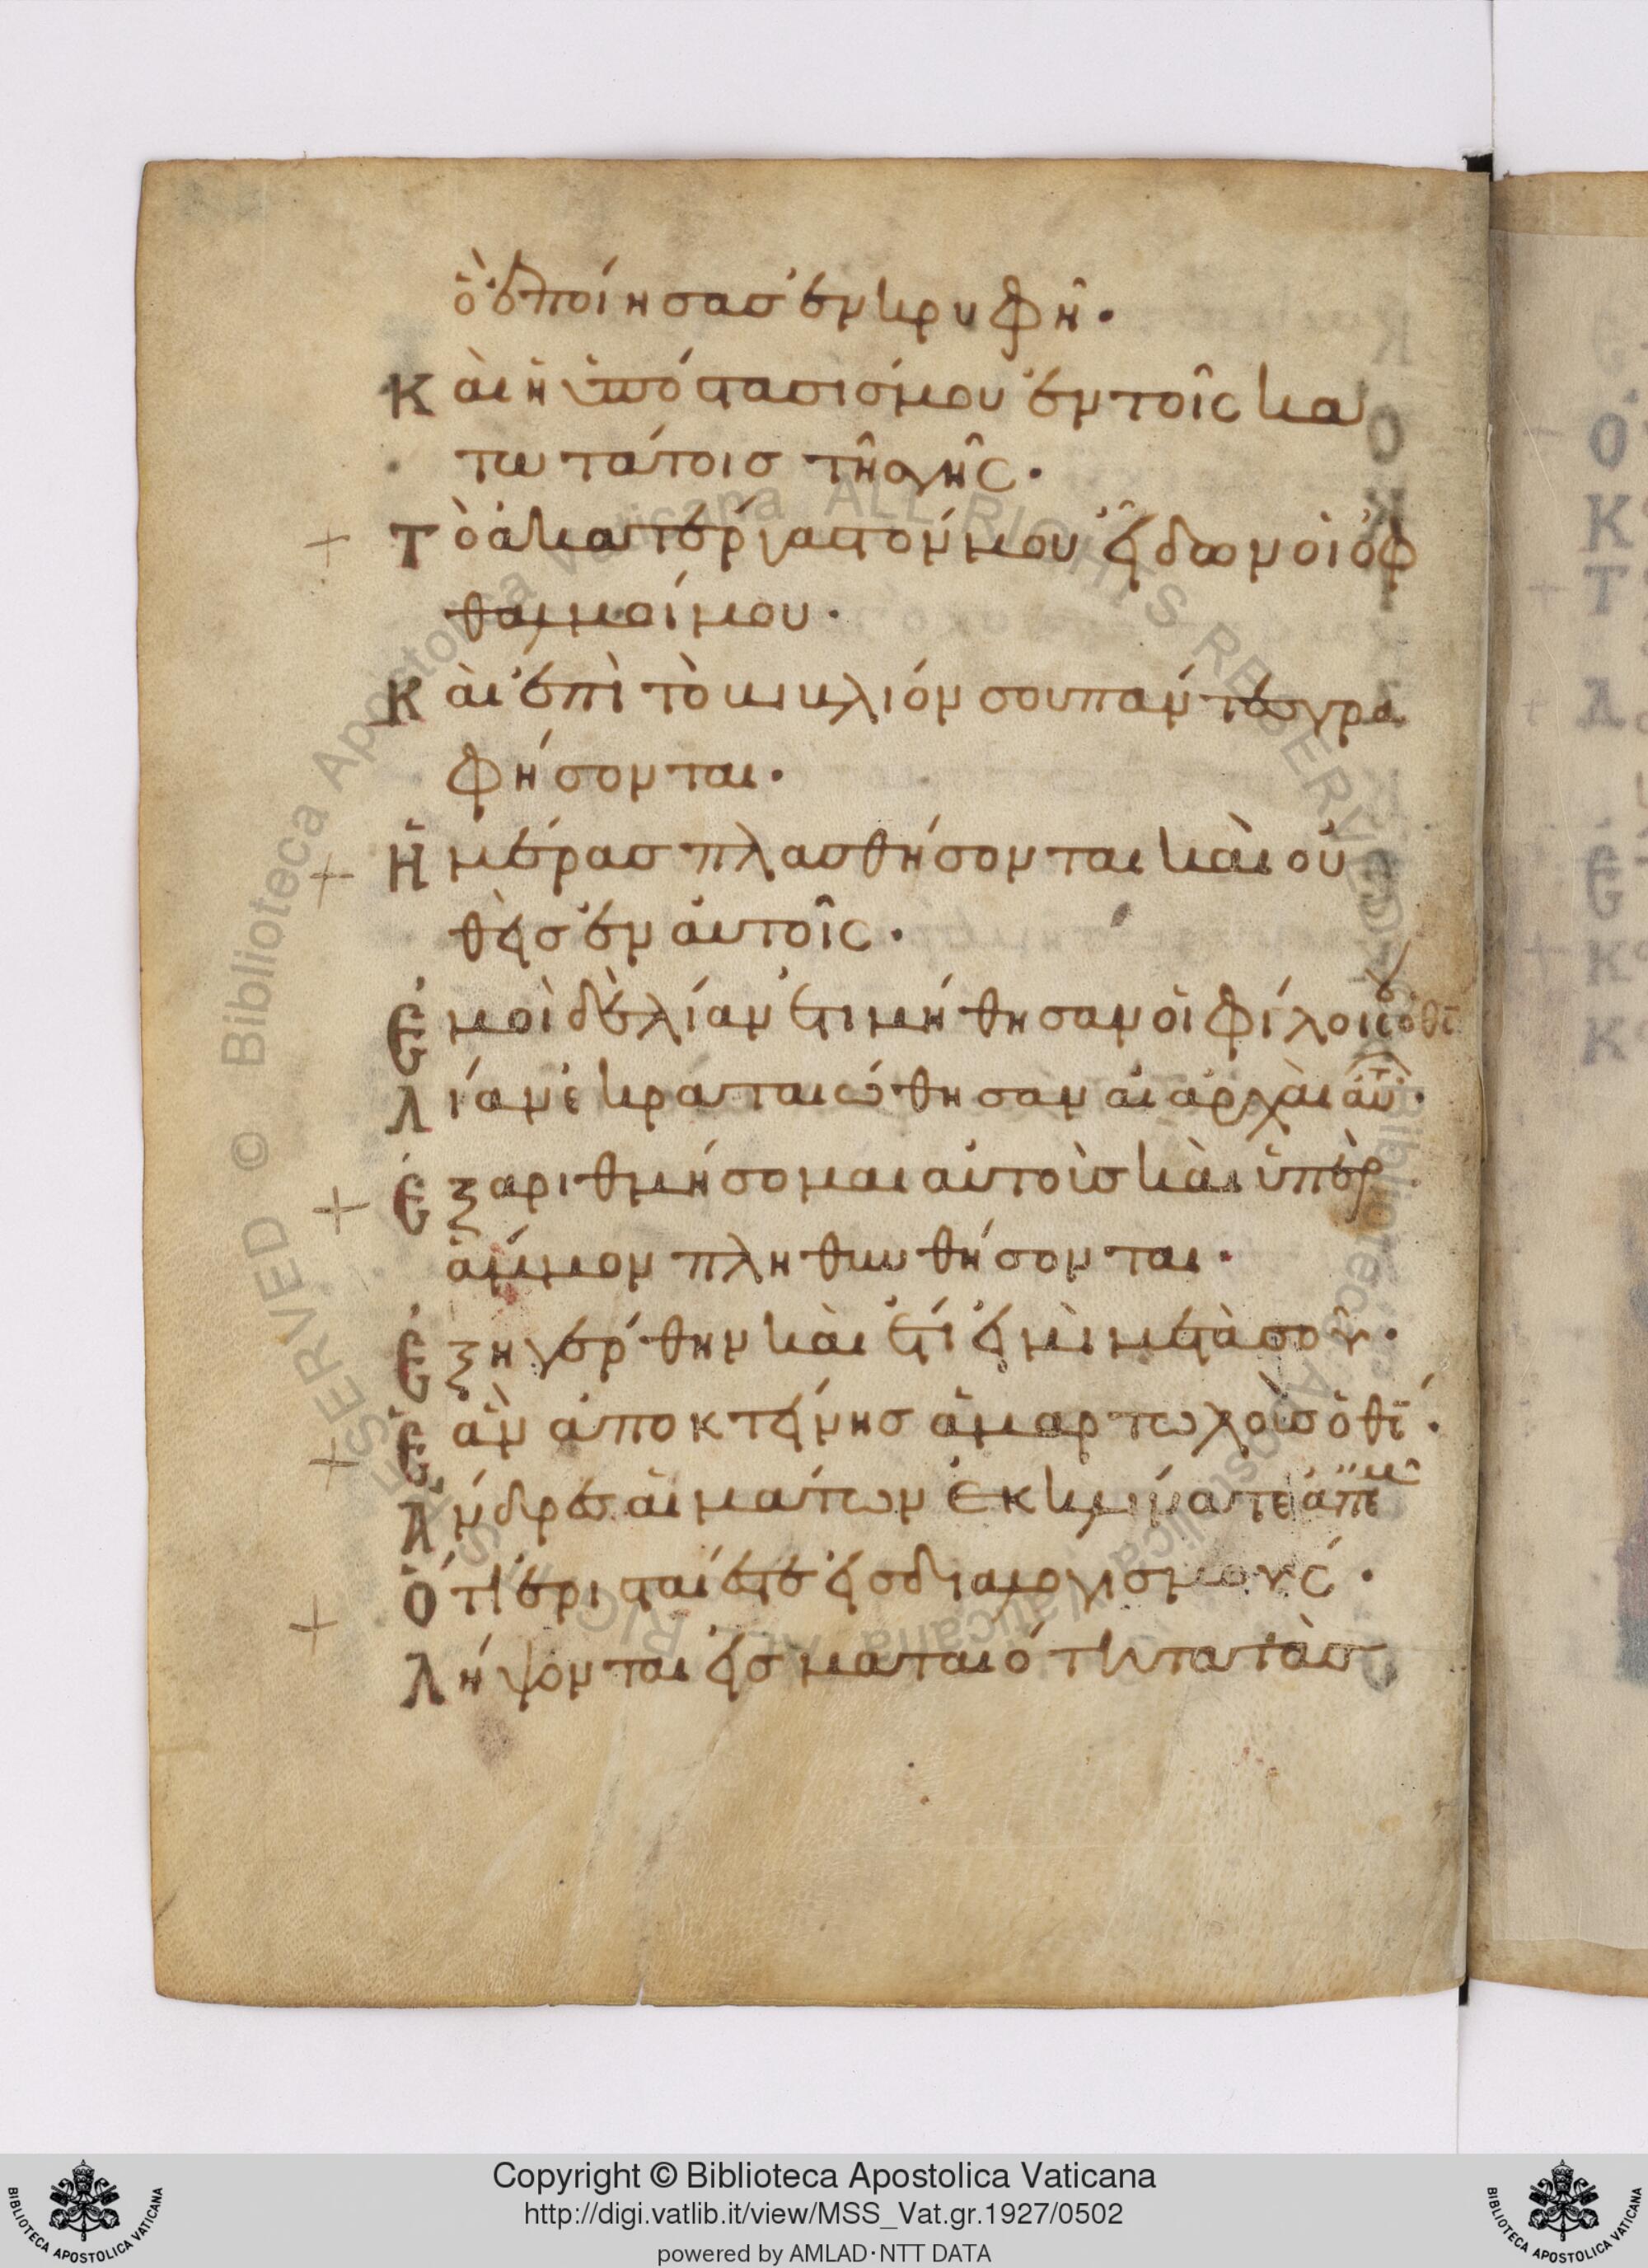 ὃ ἐποίησας ἐν κρυφῆ·
Καὶ ἡ ὑπόστασίς μου ἐν τοῖς κα
τωτάτοις τῆς γῆς·
Τὸ ἀκατέργαστόν μου εἶδον οἱ ὀφ
θαλμοί μου·
Καὶ ἐπὶ τὸ βιβλίον σου πάντες γρα
φήσονται·
Ἡμέρας πλασθήσονται καὶ οὐ
θεὶς ἐν αὐτοῖς·
Ἐμοὶ δὲ λίαν ἐτιμήθησαν οἱ φίλοι σου ὁ θς
Λίαν ἐκραταιώθησαν αἱ ἀρχαὶ αὐτῶν·
Ἐξαριθμήσομαι αὐτοὺς καὶ ὑπὲρ
ἄμμον πληθυνθήσονται·
Ἐξηγέρθην καὶ ἔτι εἰμὶ μετὰ σοῦ·
Ἐὰν ἀποκτείνης ἁμαρτωλοὺς ὁ θς·
Ἄνδρες αἱμάτων ἐκκλίνατε ἀπ' ἐμοῦ
Ὅτι ἐρισταί ἐστε εἰς διαλογισμούς·
Λήψονται εἰς ματαιότητα τὰς
Copyright © Biblioteca Apostolica Vaticana
http://digi.vatlib.it/view/MSS_Vat.gr.1927/0502
powered by AMLAD·NTT DATA
BIBLIOTECA APOSTOLICA VATICANA
BIBLIOTECA APOSTOLICA VATICANA